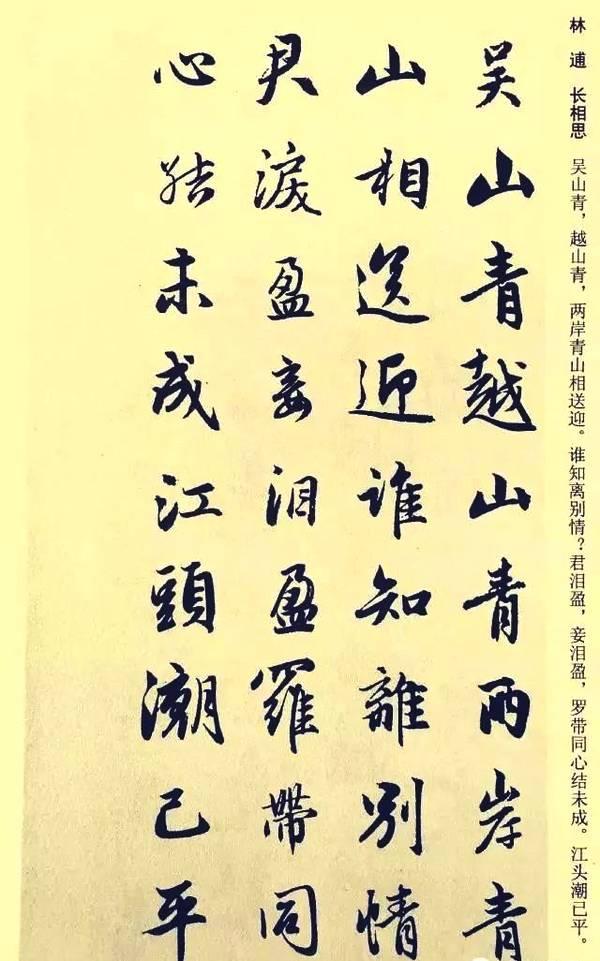 林逋 长相思 吴山青，越山青，两岸青山相送迎。谁知离别情？君泪盈，妾泪盈，罗带同心结未成。江头潮已平。
吴山青越山青两岸青
山相送迎谁知離别情
君淚盈妾泪盈羅帶同
心结未成江頭潮已平